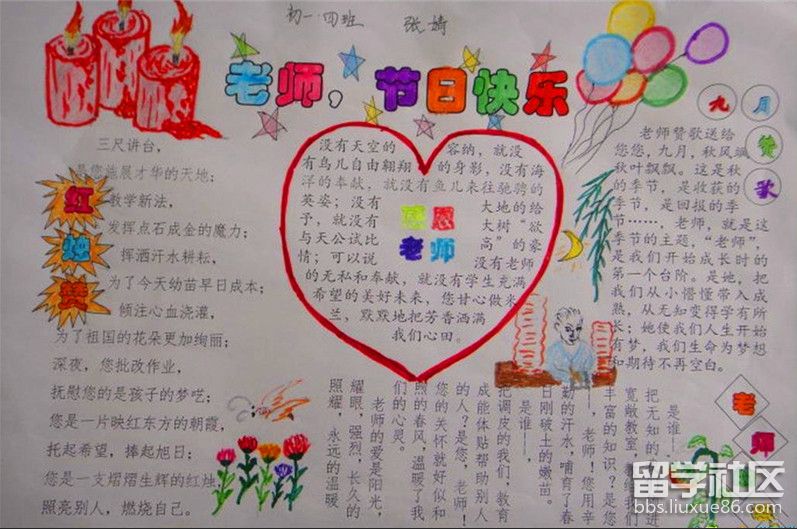 初一·四班 张婧
老师，节日快乐
红烛赞
三尺讲台，
是您施展才华的天地；
教学新法，
发挥点石成金的魔力；
挥洒汗水耕耘，
为了今天幼苗早日成本；
倾注心血浇灌，
为了祖国的花朵更加绚丽；
深夜，您批改作业，
抚慰您的是孩子的梦呓；
您是一片映红东方的朝霞，
托起希望，捧起旭日；
您是一支熠熠生辉的红烛，
照亮别人，燃烧自己。
感恩
老师
没有天空的容纳，就没
有鸟儿自由翱翔的身影，没有海
洋的奉献，就没有鱼儿来往驰骋的
英姿；没有大地的给
予，就没有大树“欲
与天公试比高”的豪
情；可以说没有老师
的无私和奉献，就没有学生充满
希望的美好未来，您甘心做米
兰，默默地把芳香洒满
我们心田。
九月赞歌
老师赞歌送给
您您，九月，秋风飒
秋叶飘飘。这是秋
的季节，是收获的
季节，是回报的季
节……，老师，就是这
季节的主题，“老师”，
是我们开始成长时的
第一个台阶。是她，把
我们从小懵懂带入成
熟，从无知变得学有所
长；她使我们人生开始
有梦，我们生命为梦想
和期待不再空白。
老师
是谁——
把无知的我们
宽敞教室，教给我们
丰富的知识？是您
——，老师！您用辛
勤的汗水，哺育了春
日刚破土的嫩苗。
是谁——，
把调皮的我们，教育
成能体贴帮助别人
的人？是您，老师！
您的关怀就好似和
煦的春风，温暖了我
们的心灵。
老师的爱是阳光，
耀眼，强烈，长久的
照耀，永远的温暖
留学社区
bbs.liuxue86.com